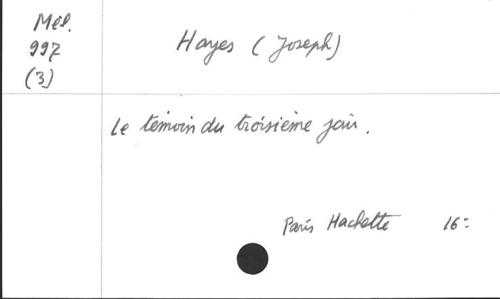 Mel.
997
(3)
Hayes (Joseph)
Le témoin du troisième jour.
Paris Hachette 16: